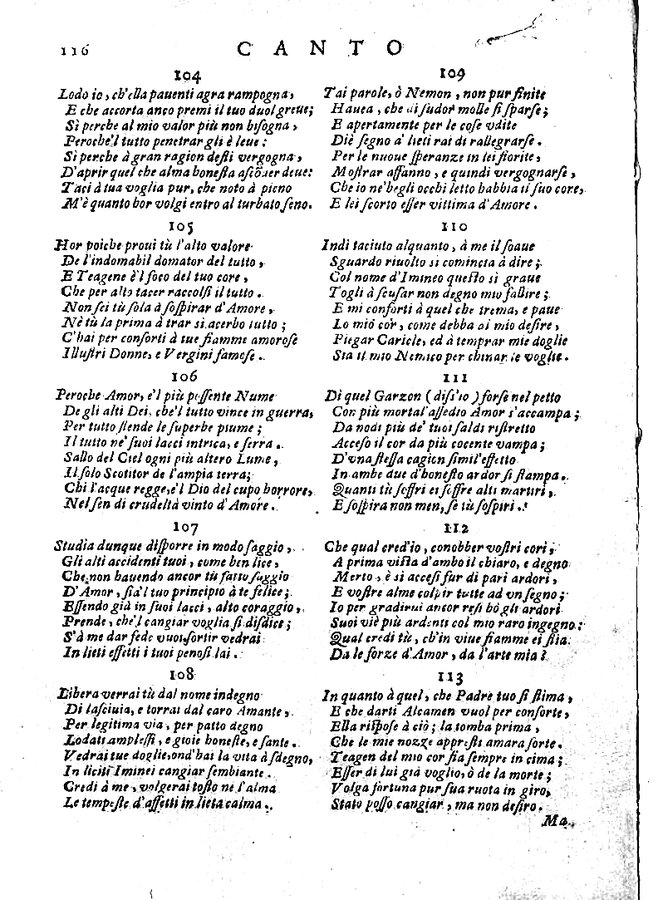 116 CANTO
104
Lodo io, ch'ella pauenti agra rampogna,
E che accorta anco premi il tuo duol greue;
Sì perche al mio valor più non bisogna,
Peroche'l tutto penetrar gli è leue:
Sì perche à gran ragion desti vergogna,
D'aprir quel che alma honesta ascōder deue:
Taci à tua voglia pur, che noto à pieno
M'è quanto hor volgi entro al turbato seno.
105
Hor poiche proui tù l'alto valore
De l'indomabil domator del tutto,
E Teagene è'l foco del tuo core,
Che per alto tacer raccolsi il tutto.
Non sei tù sola à sospirar d'Amore,
Nè tù la prima à trar sì acerbo lutto;
C'hai per conforti à tue fiamme amorose
Illustri Donne, e Vergini famose.
106
Peroche Amor, è'l più possente Nume
De gli alti Dei, che'l tutto vince in guerra,
Per tutto stende le superbe piume;
Il tutto ne' suoi lacci intrica, e serra.
Sallo del Ciel ogni più altero Lume,
Il solo Scotitor de l'ampia terra;
Chi l'acque regge, e'l Dio del cupo horrore,
Nel sen di crudeltà vinto d'Amore.
107
Studia dunque disporre in modo saggio,
Gli alti accidenti tuoi, come ben lice,
Che non hauendo ancor tù fatto saggio
D'Amor, sia'l tuo principio à te felice;
Essendo già in suoi lacci, alto coraggio,
Prende, che'l cangiar voglia si disdice;
S'à me dar fede vuoi, sortir vedrai
In lieti effetti i tuoi penosi lai.
108
Libera verrai tù dal nome indegno
Di lasciuia, e torrai dal caro Amante,
Per legitima via, per patto degno
Lodati amplessi, e gioie honeste, e sante.
Vedrai tue doglie, ond'hai la vita à sdegno,
In liciti Iminei cangiar sembiante.
Credi à me, volgerai tosto ne l'alma
Le tempeste d'affetti in lieta calma.
109
Tai parole, ò Nemon, non pur finite
Hauea, che di sudor molle si sparse;
E apertamente per le cose vdite
Diè segno à' lieti rai di rallegrarse.
Per le nuoue speranze in lei fiorite,
Mostrar affanno, e quindi vergognarse,
Che io ne' begli occhi letto habbia il suo core,
E lei scorto esser vittima d'Amore.
110
Indi taciuto alquanto, à me il soaue
Sguardo riuolto si comincia à dire;
Col nome d'Imineo questo sì graue
Togli à scusar non degno mio fallire;
E mi conforti à quel che trema, e paue
Lo mio cor, come debba al mio desire,
Piegar Caricle, ed à temprar mie doglie
Sta il mio Nemico per chinar le voglie.
111
Di quel Garzon (diss'io) forse nel petto
Con più mortal'assedio Amor s'accampa;
Da nodi più de' tuoi saldi ristretto
Acceso il cor da più cocente vampa;
D'vna stessa cagion simil'effetto
In ambe due d'honesto ardor si stampa.
Quanti tù soffri ei soffre alti martiri,
E sospira non men, se tù sospiri.
112
Che qual cred'io, conobber vostri cori,
A prima vista d'ambo il chiaro, e degno
Merto, e sì accesi fur di pari ardori,
E vostre alme colpir tutte ad vn segno;
Io per gradirui ancor resi hò gli ardori
Suoi viè più ardenti col mio raro ingegno;
Qual credi tù, ch'in viue fiamme ei stia
Da le forze d'Amor, da l'arte mia?
113
In quanto à quel, che Padre tuo si stima,
E che darti Alcamen vuol per consorte,
Ella rispose à ciò; la tomba prima,
Che le mie nozze appresti amara sorte.
Teagen del mio cor sia sempre in cima;
Esser di lui già voglio, ò de la morte;
Volga fortuna pur sua ruota in giro,
Stato posso cangiar, ma non desiro.
Ma